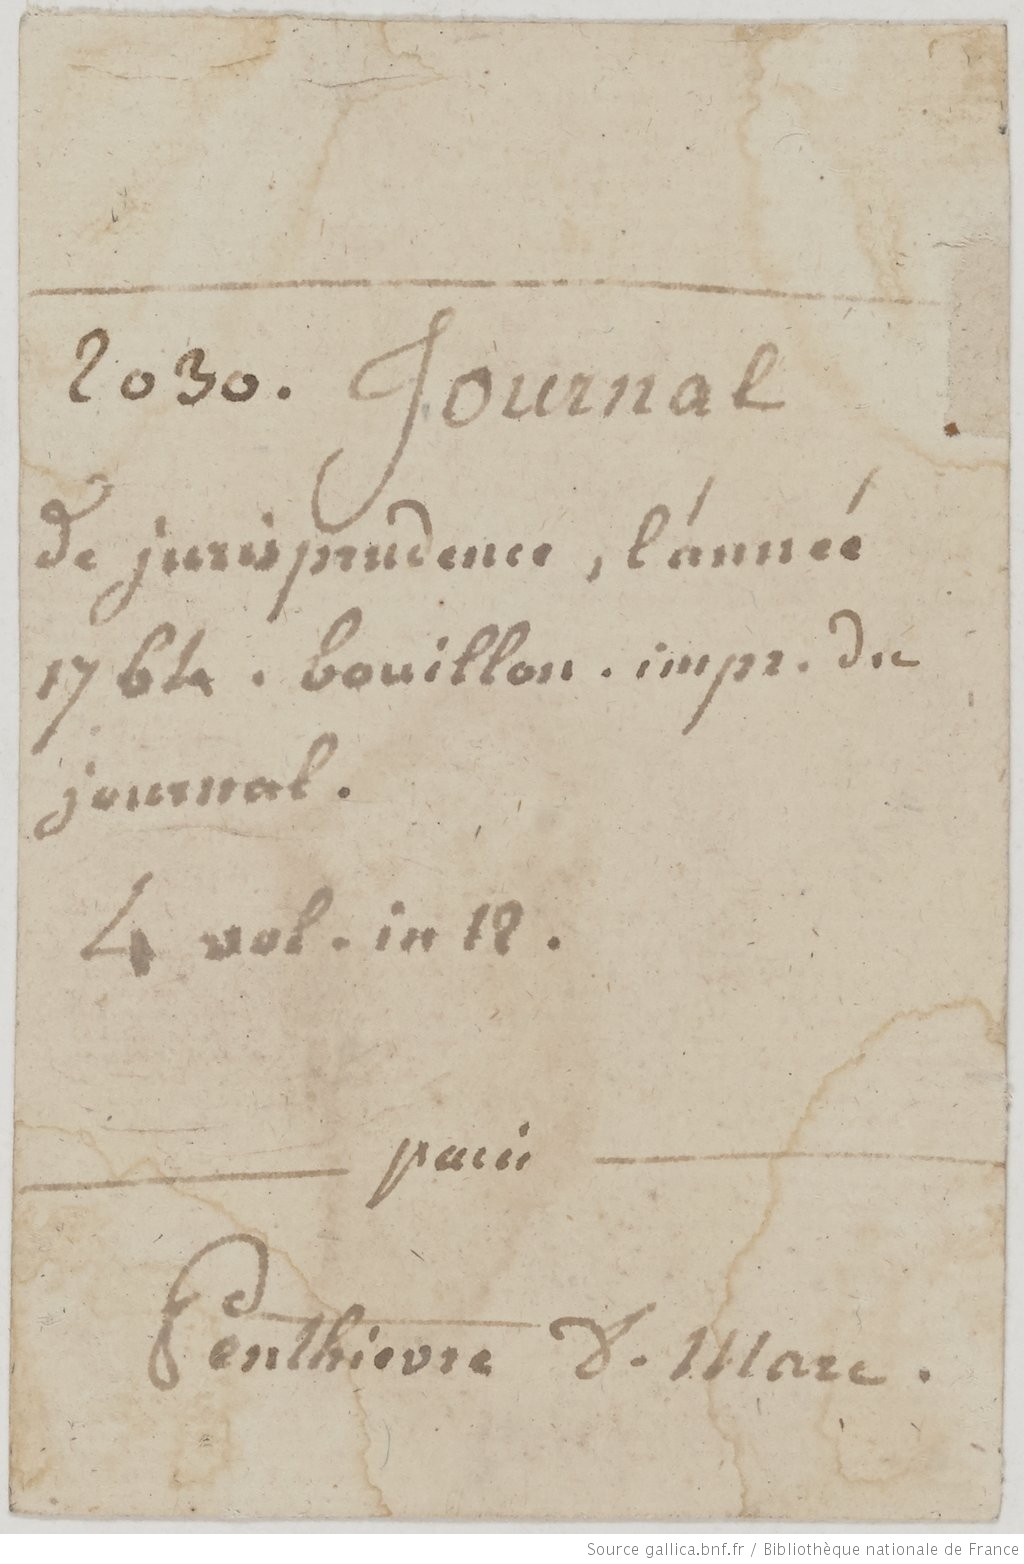 2030. Journal
de jurisprudence, l'année
1764. bouillon. impr. du
journal.
4 vol. in 12.
paris
Penthievre d. Marc.
Source gallica.bnf.fr / Bibliothèque nationale de France